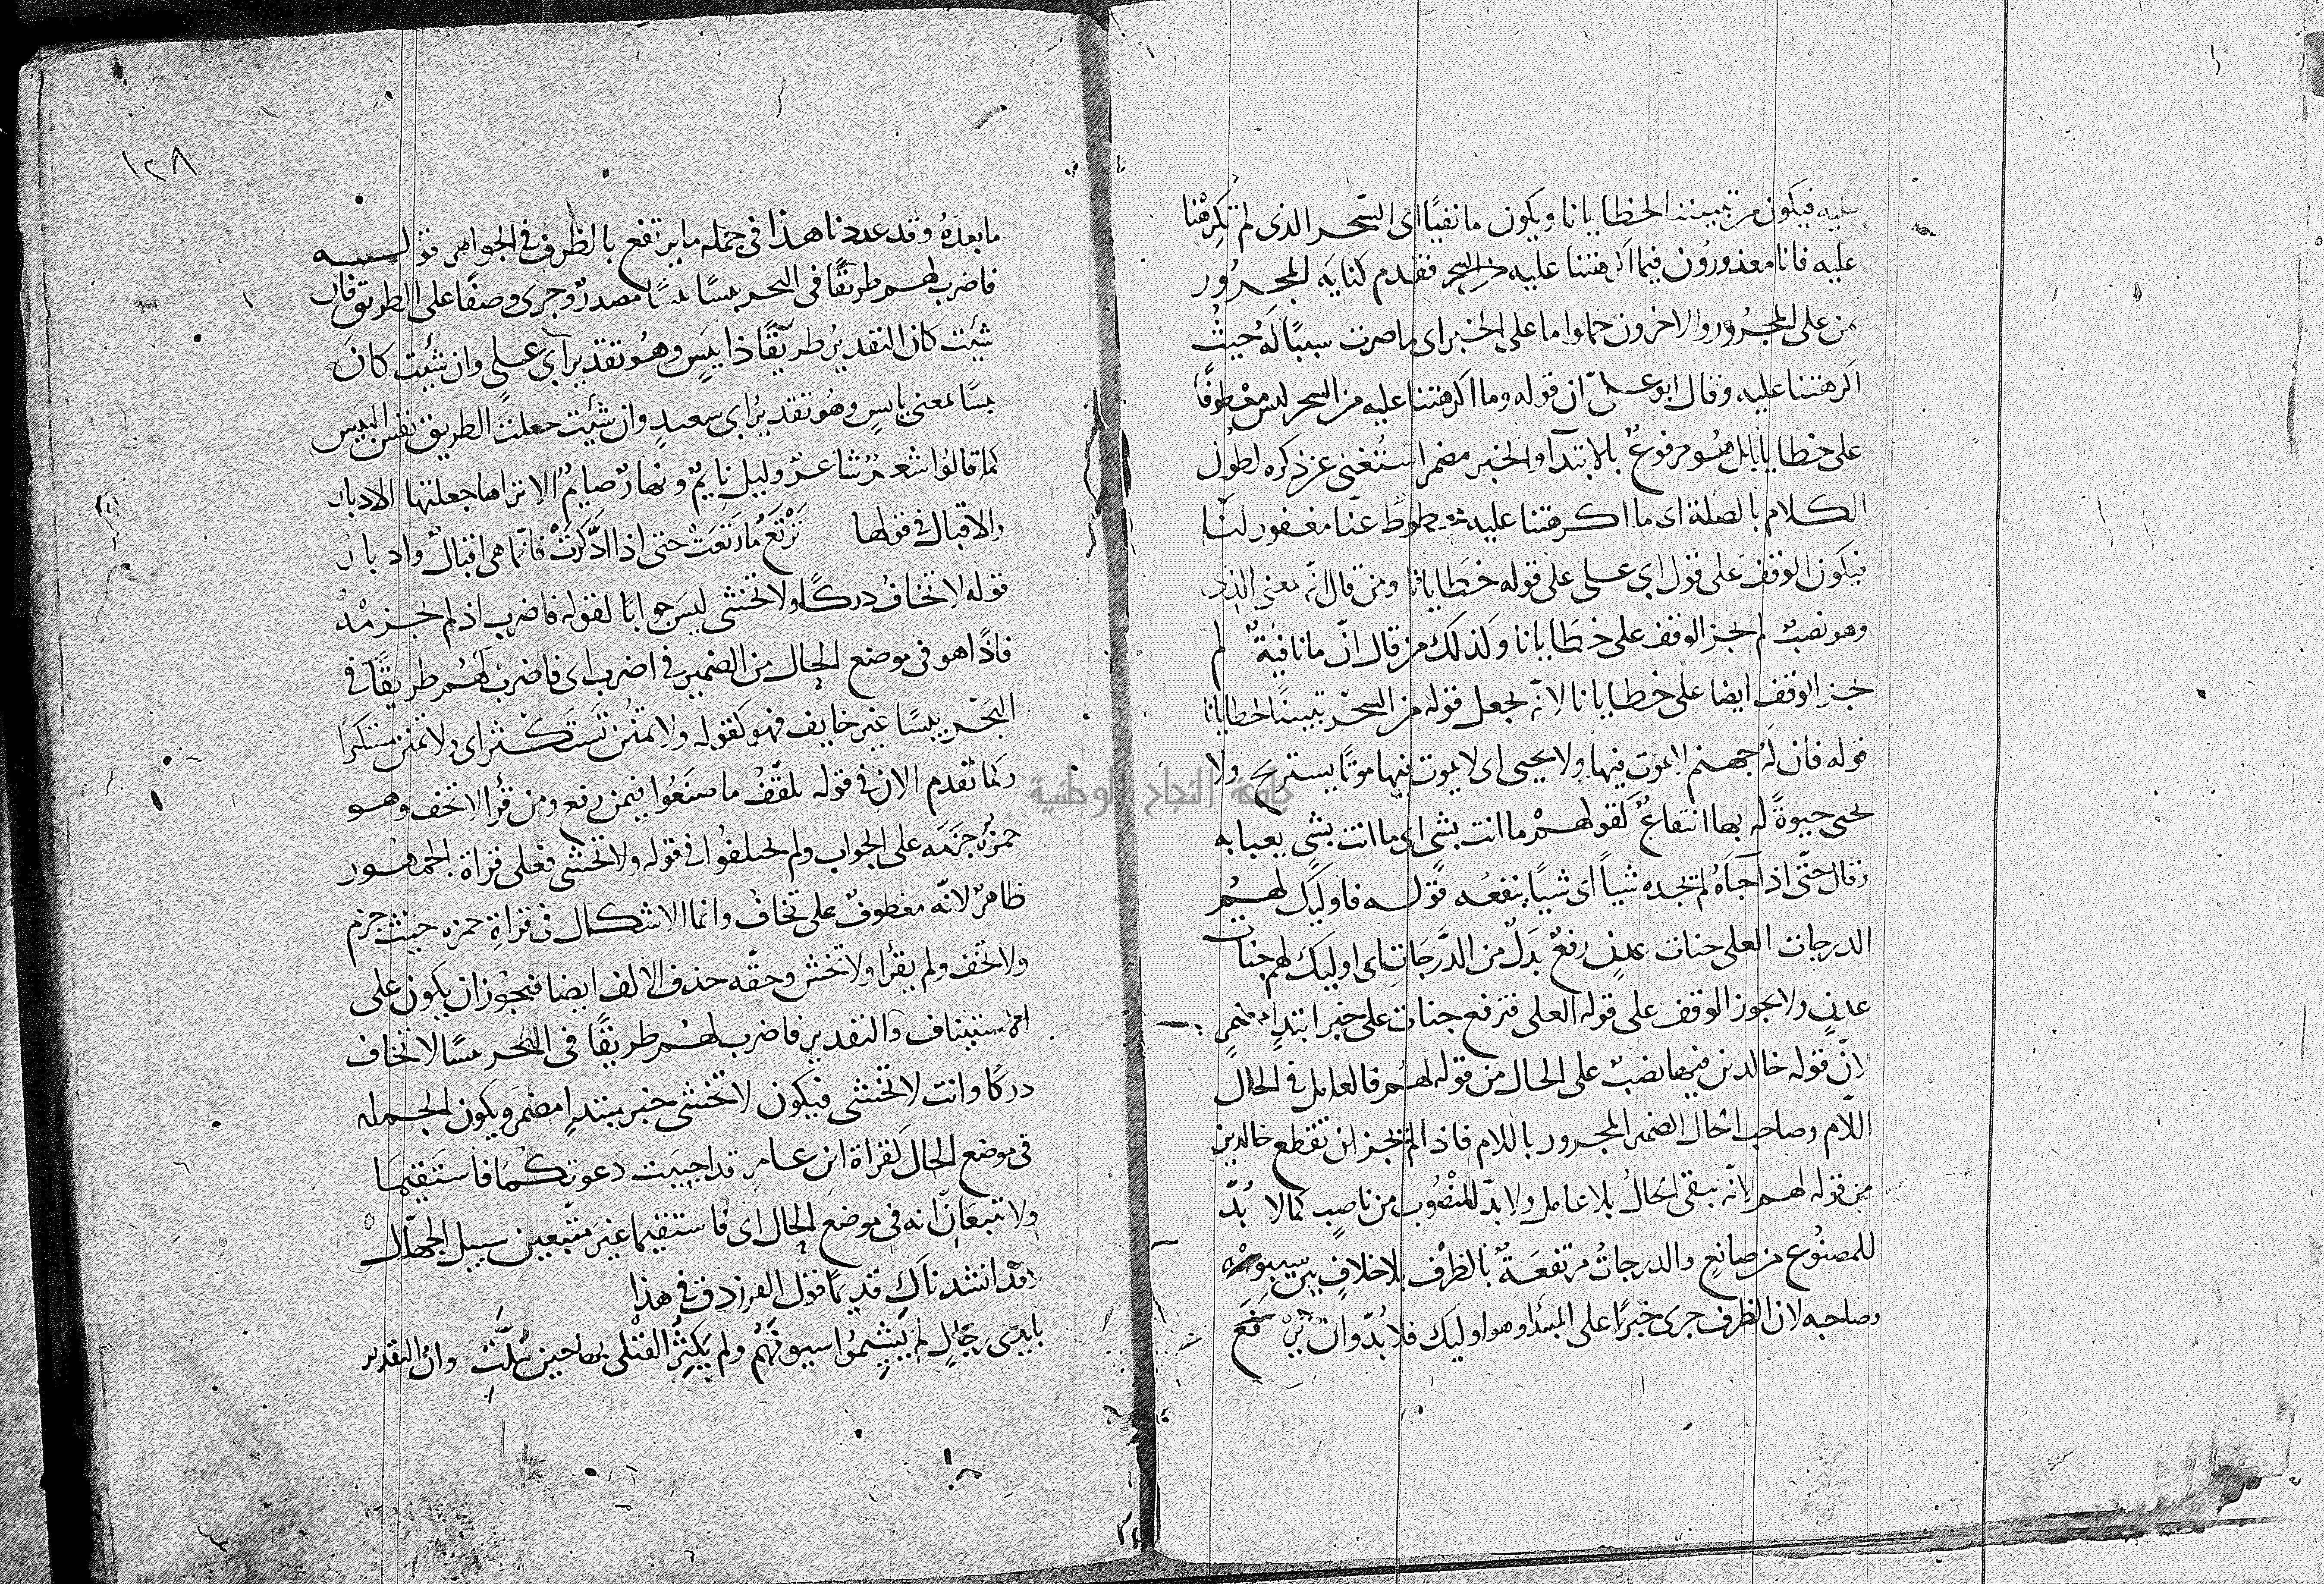 عليه فيكون من تبيننا لخطايانا ويكون ما نفيًا اى السّحر الذى لم تُكرِهْنا
عليه فانا معذورُون فيما اكرهتنا عليه من السحر فقدم كنايَه المجرُور
من على المجرُور والاخرون حملوا ما على الخبر اى ما صرت سببًا له حيثُ
اكرهتنا عليه وقال ابو على ان قوله وما اكرهتنا عليه من السحر ليس معطوفًا
على خطايانا بل هو مرفوعٌ بالابتدآ والخبر مضمر استُغنى عن ذكره لطُول
الكلام بالصلة اى ما اكرهتنا عليه محطوطٌ عنّا مغفور لنا
فيكون الوقف على قول ابي على على قوله خطايانا ومن قال انّه معنى الذى
وهو نصبٌ لم يجز الوقف على خطايانا وكذلك من قال انّ ما نافيةٌ لم
يجز الوقف ايضا على خطايانا لانّه يجعل قوله من السحر تبيينًا لخطايانا
قوله فان لهُ جهنم لا يموت فيها ولا يحيى اى لا يموت فيها موتًا يستريح ولا
يحيى حيوةً له بها انتفاعٌ كقولهمْ ما انت بشى اى ما انت بشيٍ يعبا به
وقال حتّى اذا جآءهُ لم يجده شياً اى شيًا ينفعُه قوله فاوليك لهُم
الدرجات العلى جنات عدنٍ رفعٌ بَدلٌ من الدَّرَجَاتِ اى اوليك لهم جنات
عدنٍ ولا يجوز الوقف على قوله العلى فترفع جنات على خبر ابتدإ مضمرٍ
لانّ قوله خالدين فيها نصبٌ على الحال من قوله لهُم فالعامل فى الحال
اللّام وصاحب الحال الضمير المجرور باللام فاذا لم يجز ان تقطع خالدين
من قوله لهم لانّه يبقى الحالُ بلا عامل ولا بدّ للمنصُوب من ناصبٍ كما لا بُدّ
للمصنُوع من صانعٍ والدرجاتُ مرتفعَةٌ بالظرْف بلا خلافٍ بين سيبويْه
وصاحبه لان الظرف جرى خبرًا على المبتدا وهو اوليك فلا بُدّ وان يرْتفعَ
١٢٨
ما بعدَهُ وقد عددنا هذا فى جمله ما يرتفع بالظرف فى الجواهر قوله
فاضرب لهم طريقًا فى البحر يبسًا يبسًا مصدرٌ وجرى وصفًا على الطريق فان
شئت كان التقديرُ طريقًا ذا يبسٍ وهُو تقدير ابي على وان شئت كان
يبسًا بمعنى يابسٍ وهُو تقديرُ ابي سعيدٍ وان شئت جعلتَ الطريق نفس اليبس
كما قالوُا شعرٌ شاعرٌ وليل نايمٌ ونهارٌ صايمٌ الا تراها جعلتها الادبار
والاقبال فى قولها تَرْتَعُ مَا رَتعَتْ حتى اذا ادَّكَرَتْ فانّما هى اقبالٌ وادبارُ
قوله لا تخافُ دركًا ولا تخشى ليسَ جوابًا لقوله فاضرب اذ لم يجزمْهُ
فاذًا هو فى موضع الحال من الضمير فى اضرب اى فاضربْ لهُم طريقًا فى
البَحْر يبسًا غير خايف فهو كقوله ولا تمنُن تَستكثر اى ولا تمنن مستكثرا
وكما تقدم الان فى قوله تلقّفُ ما صنَعُوا فيمن رفع ومن قرأ لا تخف وهو
حمزةُ جزَمَه على الجواب ولم يختلفُوا فى قوله ولا تخشى فعلى قراة الجمهُور
ظاهرٌ لانّه معطوفٌ على تخافُ وانما الاشكال فى قراةِ حمزه حيثُ جزم
ولا تخف ولم يقرأ ولا تخش وحقّه حذف الالف ايضا فيجُوز ان يكون على
الاستيناف والتقدير فاضرب لهُم طريقًا فى البحر يبسًا لا تخاف
دركًا وانت لا تخشى فيكون لا تخشى خبر مبتدإ مضمر ويكون الجمله
فى موضع الحال كقراة ابن عامرٍ قد اجيبَت دعوتكُمَا فاستَقيمَا
ولا تتبعَانِ انه فى موضع الحال اى فاستقيما غيرَ متّبعين سبيل الجهّال
وقد انشدناك قديمًا قول الفرزدق فى هذا
بايدى رجالٍ لم يَشِيمُوا سيوفَهُم ولم يَكثُرُ القتلى بها حين سُلَّتِ وان التقدير